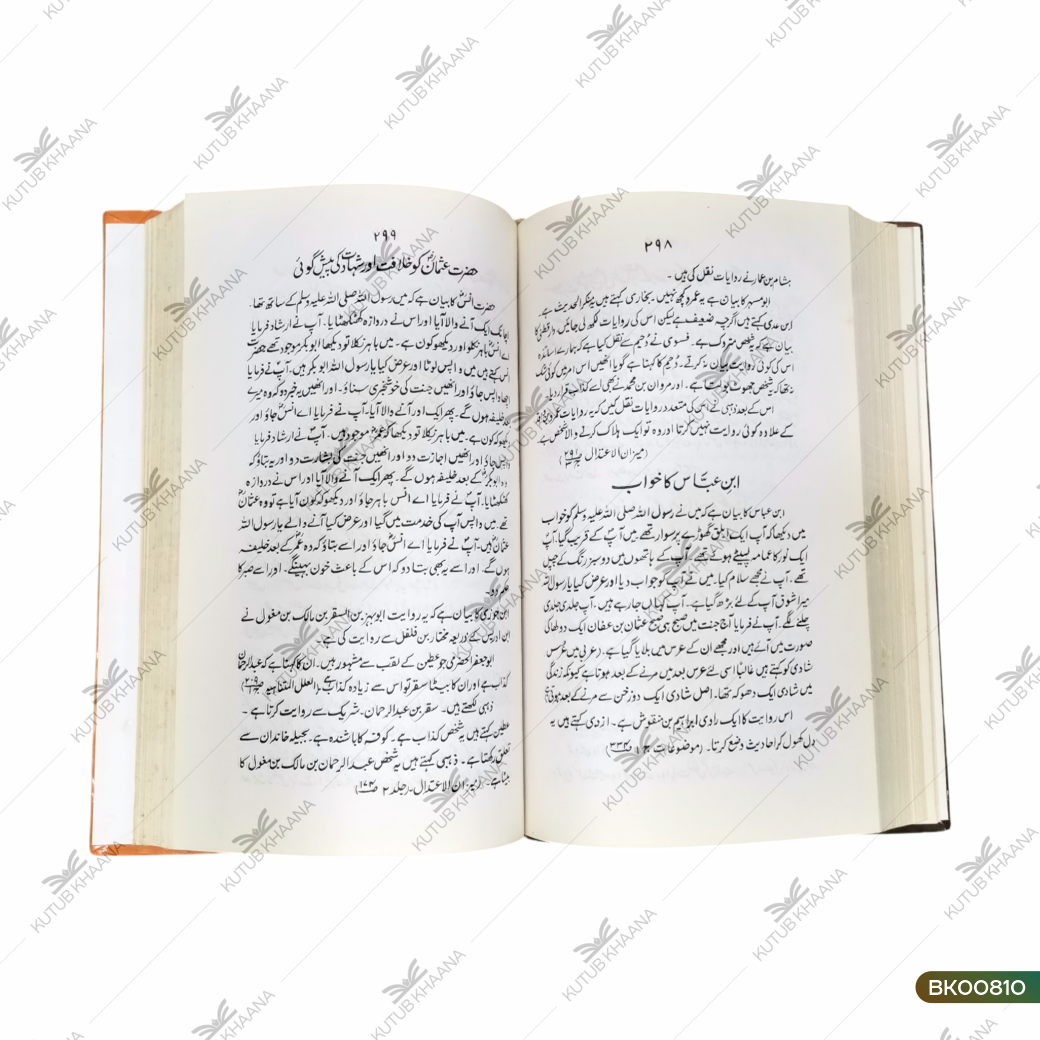 ۲۹۸
ہشام بن عمار نے روایات نقل کی ہیں۔
ابو مسہر کا بیان ہے یہ عمرو کچھ نہیں۔ بخاری کہتے ہیں منکر الحدیث ہے۔
ابن عدی کہتے ہیں اگرچہ ضعیف ہے لیکن اس کی روایات لکھ لی جائیں، دارقطنی کا
بیان ہے کہ یہ شخص متروک ہے۔ فسوی نے دُحیم سے نقل کیا ہے کہ ہمارے اساتذہ
اس کی کوئی روایت بیان نہ کرتے۔ دُحیم کا کہنا ہے گویا انھیں اس امر میں کوئی شک
نہ تھا کہ یہ شخص جھوٹ بولتا ہے۔ اور مروان بن محمد نے بھی اسے کذاب قرار دیا۔
اس کے بعد ذہبی نے اس کی متعدد روایات نقل کیں کہ یہ روایات عمرو بن واقد
کے علاوہ کوئی روایت نہیں کرتا اور وہ تو ایک ہلاک کرنے والا شخص ہے۔
(میزان الاعتدال ۲۹۱/۳)
ابن عباس کا خواب
ابن عباس کا بیان ہے کہ میں نے رسول اللہ صلی اللہ علیہ وسلم کو خواب
میں دیکھا کہ آپ ایک ابلق گھوڑے پر سوار تھے میں آپ کے قریب گیا، آپ
ایک نور کا عمامہ لپیٹے ہوئے تھے۔ آپ کے ہاتھوں میں دو سبز رنگ کے چپل
تھے۔ آپ نے مجھے سلام کیا۔ میں نے آپ کو جواب دیا اور عرض کیا یا رسول اللہ
میرا شوق آپ کے لئے بڑھ گیا ہے۔ آپ کہاں جا رہے ہیں، آپ جلدی جلدی
چلنے لگے۔ آپ نے فرمایا آج جنت میں صبح ہی صبح عثمان بن عفان ایک دولھا کی
صورت میں آئے ہیں اور مجھے ان کے عرس میں بلایا گیا ہے۔ (عربی میں عُرس
شادی کو کہتے ہیں غالباً اسی لئے عرس بعد میں مرنے کے بعد ہوتا ہے کیونکہ زندگی
میں شادی ایک دھوکہ تھا۔ اصل شادی ایک دوزخن سے مرنے کے بعد ہوئی)
اس روایت کا ایک راوی ابراہیم بن منقوش ہے۔ ازدی کہتے ہیں یہ
دل کھول کر احادیث وضع کرتا۔ (موضوعات ج ۱ ص۳۳۴)
۲۹۹
حضرت عثمانؓ کو خلافت اور شہادت کی پیش گوئی
حضرت انسؓ کا بیان ہے کہ میں رسول اللہ صلی اللہ علیہ وسلم کے ساتھ تھا۔
اچانک ایک آنے والا آیا اور اس نے دروازہ کھٹکھٹایا۔ آپ نے ارشاد فرمایا
اے انسؓ باہر نکلو اور دیکھو کون ہے۔ میں باہر نکلا تو دیکھا ابوبکر موجود تھے حضرت
انس کہتے ہیں میں واپس لوٹا اور عرض کیا یا رسول اللہ ابوبکر ہیں۔ آپؐ نے فرمایا
اچھا واپس جاؤ اور انھیں جنت کی خوشخبری سناؤ۔ اور انھیں یہ خبر دو کہ وہ میرے
بعد خلیفہ ہوں گے۔ پھر ایک اور آنے والا آیا۔ آپ نے فرمایا اے انسؓ جاؤ اور
دیکھو کہ کون ہے۔ میں باہر نکلا تو دیکھا کہ عمرؓ موجود ہیں۔ آپؐ نے ارشاد فرمایا
واپس جاؤ اور انھیں اجازت دو اور انھیں جنت کی بشارت دو اور یہ بتاؤ کہ
وہ ابوبکرؓ کے بعد خلیفہ ہوں گے۔ پھر ایک آنے والا آیا اور اس نے دروازہ
کھٹکھٹایا۔ آپؐ نے فرمایا اے انس باہر جاؤ اور دیکھو کہ کون آیا ہے تو وہ عثمانؓ
تھے۔ میں واپس آپ کی خدمت میں گیا اور عرض کیا آنے والے یا رسول اللہ
عثمانؓ ہیں، آپؐ نے فرمایا اے انسؓ جاؤ اور اسے بتاؤ کہ وہ عمرؓ کے بعد خلیفہ
ہوں گے۔ اور اسے یہ بھی بتا دو کہ اس کے باعث خون بہیں گے۔ اور اسے صبر کا
حکم دو۔
ابن جوزی کا بیان ہے کہ یہ روایت ابو بہز بن السقر بن مالک بن مغول نے
ابن ادریس کے ذریعہ مختار بن فلفل سے روایت کی ہے۔
ابوجعفر الحضرمی جو مطین کے لقب سے مشہور ہیں۔ ان کا کہنا ہے کہ عبدالرحمان
کذاب ہے اور ان کا بیٹا سقر تو اس سے زیادہ کذاب ہے۔ (العلل المتناہیہ ص۲۰۹)
ذہبی لکھتے ہیں۔ سقر بن عبدالرحمان۔ شریک سے روایت کرتا ہے۔
مطین کہتے ہیں یہ شخص کذاب ہے۔ کوفہ کا باشندہ ہے۔ بجیلہ خاندان سے
تعلق رکھتا ہے۔ ذہبی کہتے ہیں یہ شخص عبدالرحمان بن مالک بن مغول کا
بیٹا ہے۔ (میزان الاعتدال۔ جلد ۲ ص۱۷۴)
BK00810
KUTUB KHAANA